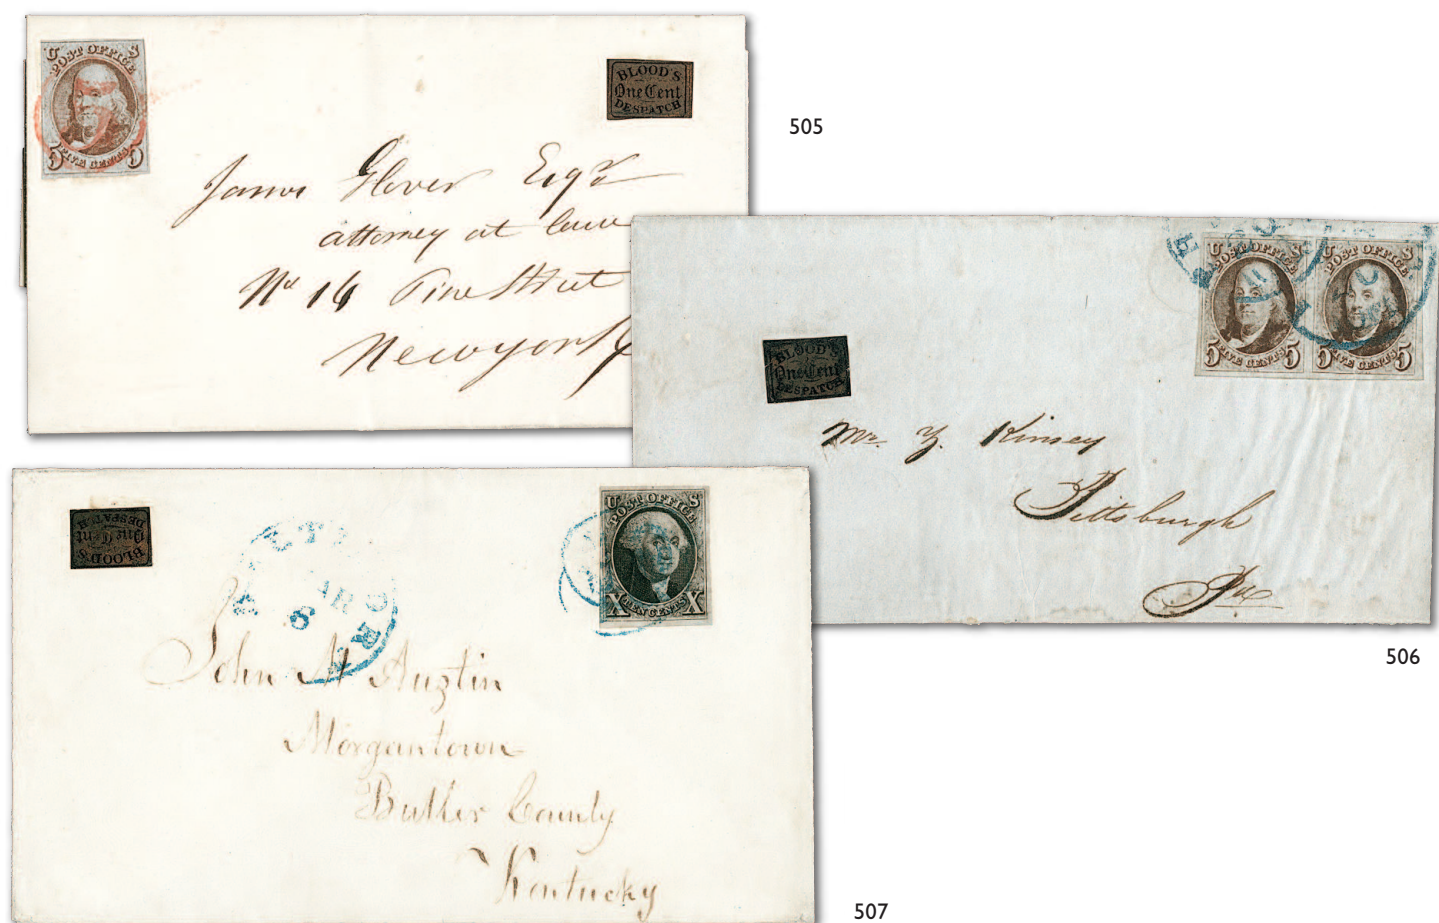 U S
POST OFFICE
FIVE CENTS
5 5
BLOOD'S
One Cent
DESPATCH
James Glover Esqr
attorney at law
No 16 Pine Street
New york
505
U S
POST OFFICE
FIVE CENTS
5 5
U S
POST OFFICE
FIVE CENTS
5 5
BLOOD'S
One Cent
DESPATCH
Mr. Z. Kinsey
Pittsburgh
Pa
506
BLOOD'S
One Cent
DESPATCH
U S
POST OFFICE
TEN CENTS
X X
8
John M Austin
Morgantown
Butler County
Kentucky
507